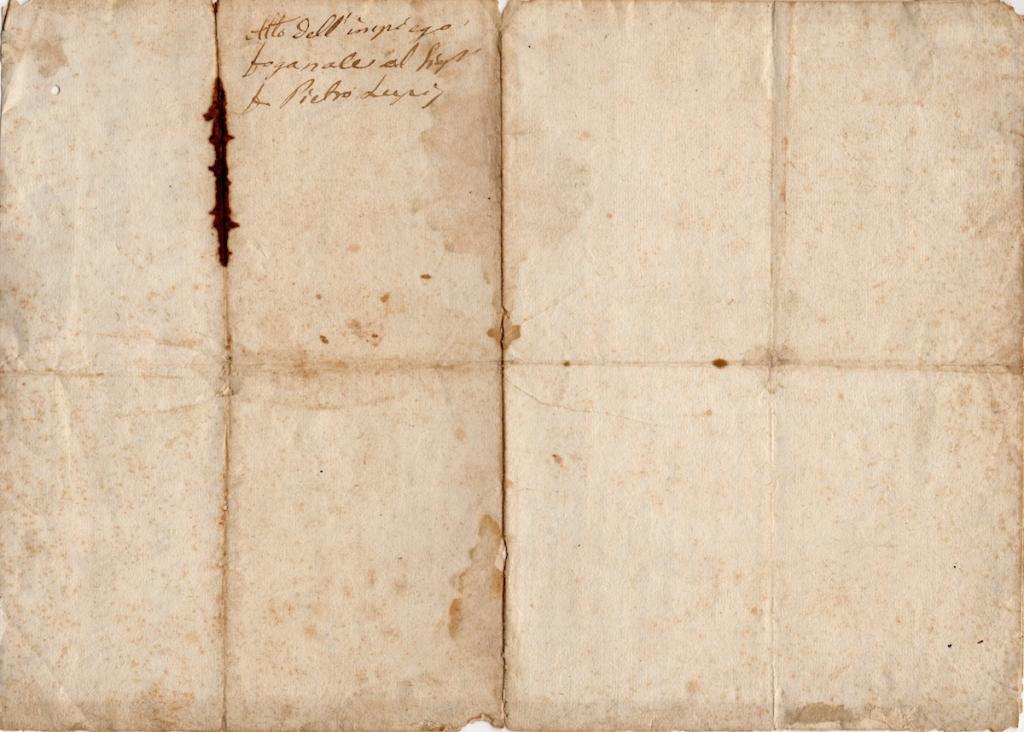 Atto dell'impiego
doganale al Sigr
Pietro